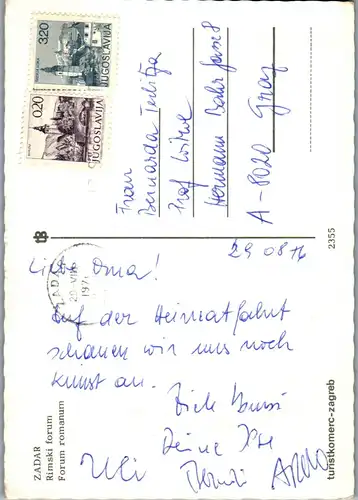 3.20
JUGOSLAVIJA
0.20
JUGOSLAVIJA
Frau
Bernarda
Prof. Witwe
Hermann Bahr Gasse 8
A-8020 Graz
tB
2355
29 08 76
ZADAR
Liebe Oma!
Auf der Heimatfahrt
schauen wir uns noch
Kunst an.
Dick Bussi
Deine Ilse
Uli
ZADAR
Rimski forum
Forum romanum
turistkomerc-zagreb